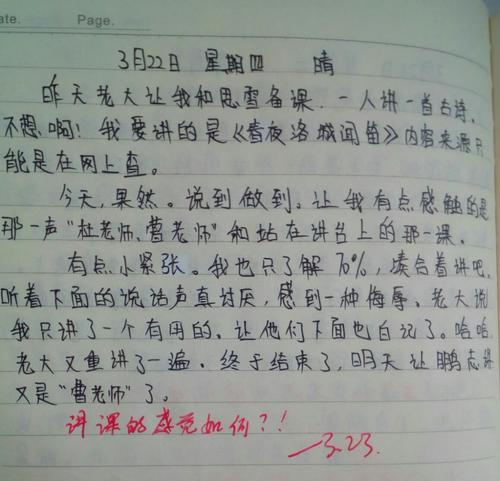 ate.    Page.
3月22日 星期四 晴
昨天老大让我和思雪备课.一人讲一首古诗.
不想啊!我要讲的是《春夜洛城闻笛》内容来源只
能是在网上查。
今天,果然。说到做到.让我有点感触的是
那一声"杜老师、曹老师"和站在讲台上的那一课.
有点小紧张。我也只了解70%,凑合着讲吧.
听着下面的说话声真讨厌,感到一种侮辱、老大说
我只讲了一个有用的、让他们下面也白记了。哈哈.
老大又重讲了一遍.终于结束了,明天让鹏志课
又是"曹老师"了。
讲课的感觉如何?!
3.23.